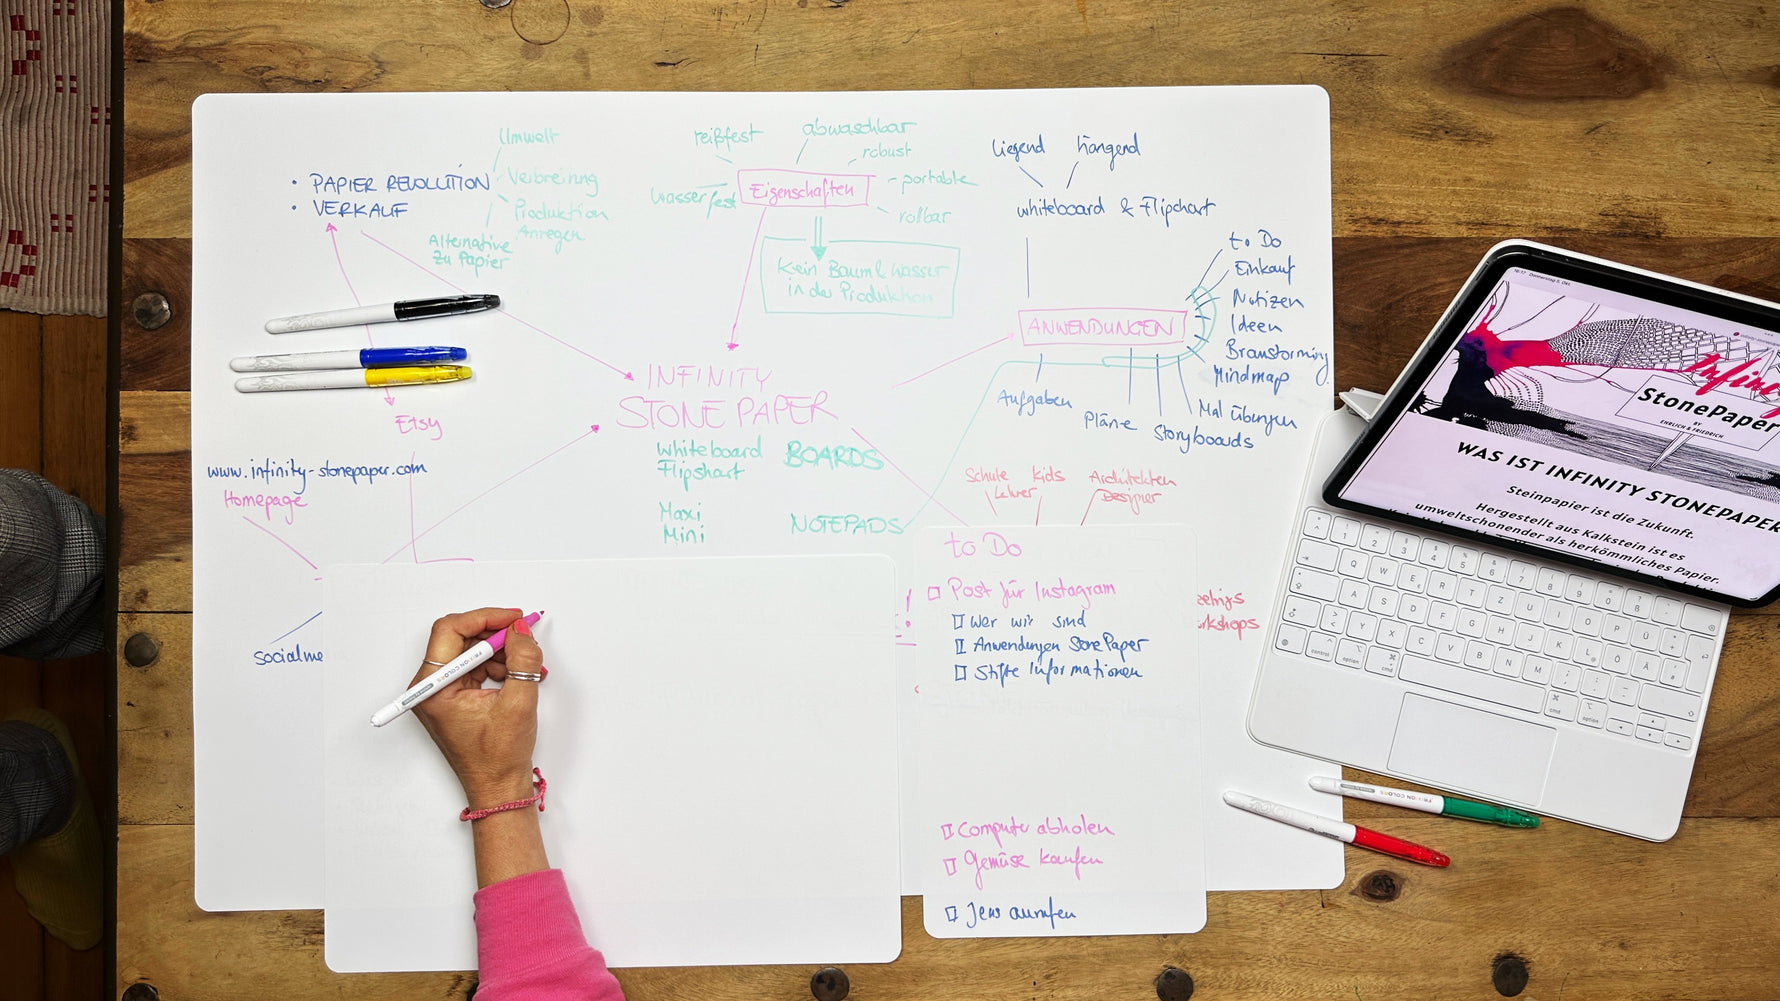 • PAPIER REVOLUTION
• VERKAUF
Umwelt
Verbreitung
Produktion
Anregen
Alternative
zu Papier
reißfest
abwaschbar
robust
wasserfest
Eigenschaften
portable
rollbar
Kein Baum & Wasser
in der Produktion
liegend hängend
whiteboard & Flipchart
to Do
Einkauf
Notizen
Ideen
Brainstorming
Mindmap
ANWENDUNGEN
Aufgaben
Pläne
Storyboards
Mal übungen
INFINITY
STONE PAPER
whiteboard
Flipshart
BOARDS
Maxi
Mini
NOTEPADS
Etsy
www.infinity-stonepaper.com
Homepage
socialme
Schule Kids Architekten
Lehrer Designer
kshops
to Do
Post für Instagram
Wer wir sind
Anwendungen StonePaper
Stifte Informationen
Computer abholen
Gemüse kaufen
Jens anrufen
FRIXION COLORS
StonePaper
BY
EHRLICH & FRIEDRICH
WAS IST INFINITY STONEPAPER
Steinpapier ist die Zukunft.
Hergestellt aus Kalkstein ist es
umweltschonender als herkömmliches Papier.